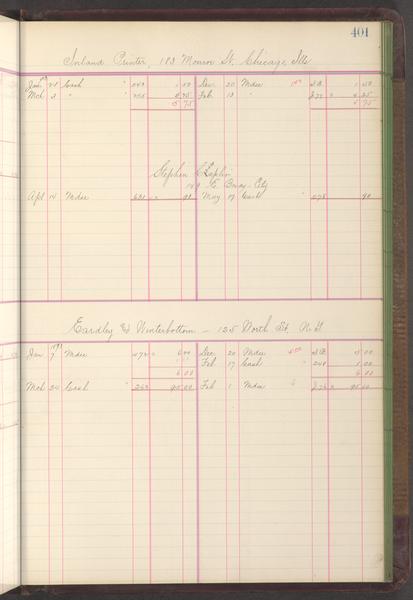 401
Inland Printer, 183 Monroe St. Chicago, Ills
Jan 24 Cash " 243 1 50 Dec 20 Mdse S.B. 1 50
Mch 3 " " 255 4 25 Feb 13 " 272 4 25
5 75 5 75
Stephen Chaplin
149 Bway - City
Apl 14 Mdse 631 90 May 19 Cash 275 90
Eardley & Winterbottom - 125 Worth St. N.Y.
Jan 7 Mdse 472 6 00 Dec 20 Mdse S.B. 5 00
Feb 17 Cash " 248 1 00
6 00 6 00
Mch 24 Cash " 263 95 00 Feb 1 Mdse 276 95 00